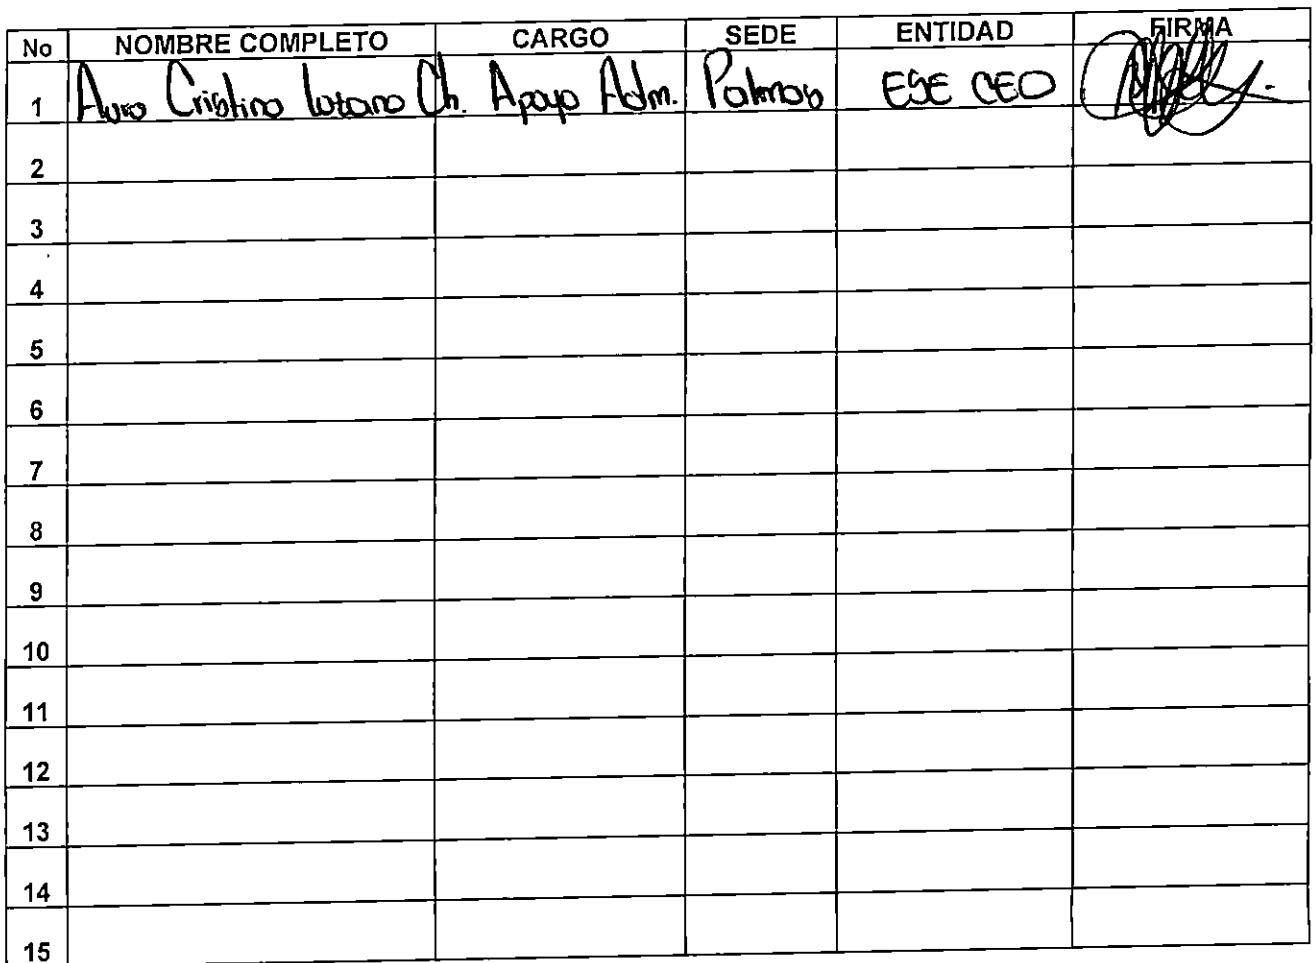 No NOMBRE COMPLETO CARGO SEDE ENTIDAD FIRMA
1 Aura Cristina Lozano Ch. Apoyo Adm. Palmas ESE CEO
2
3
4
5
6
7
8
9
10
11
12
13
14
15